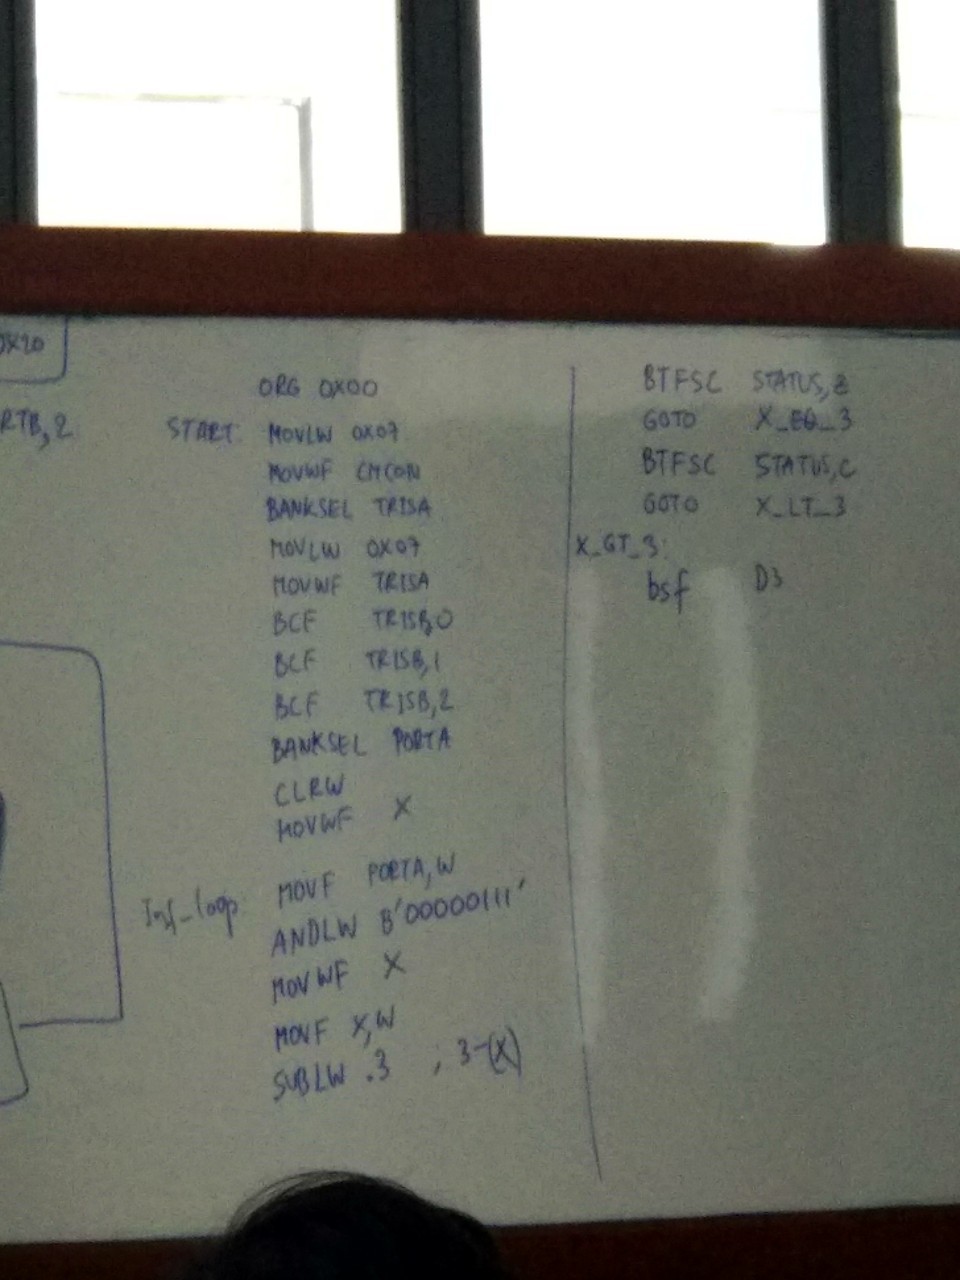 0X20
RTB,2
ORG 0X00
START: MOVLW 0X07
MOVWF CMCON
BANKSEL TRISA
MOVLW 0X07
MOVWF TRISA
BCF TRISB,0
BCF TRISB,1
BCF TRISB,2
BANKSEL PORTA
CLRW
MOVWF X
Inf_loop: MOVF PORTA,W
ANDLW B'00000111'
MOVWF X
MOVF X,W
SUBLW .3 ; 3-(X)
BTFSC STATUS,Z
GOTO X_EQ_3
BTFSC STATUS,C
GOTO X_LT_3
X_GT_3:
bsf D3